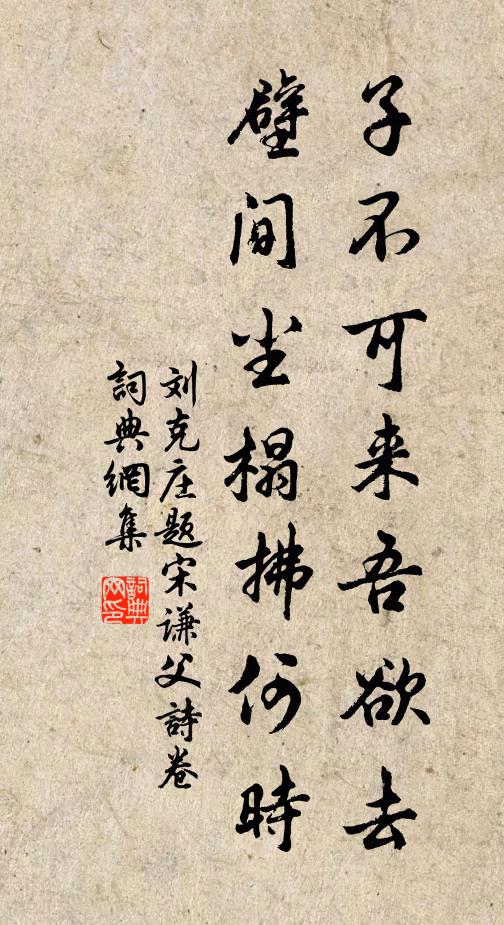 子不可来吾欲去
壁间尘榻拂何時
刘克庄题宋谦父詩卷
詞典網集
詞典网印